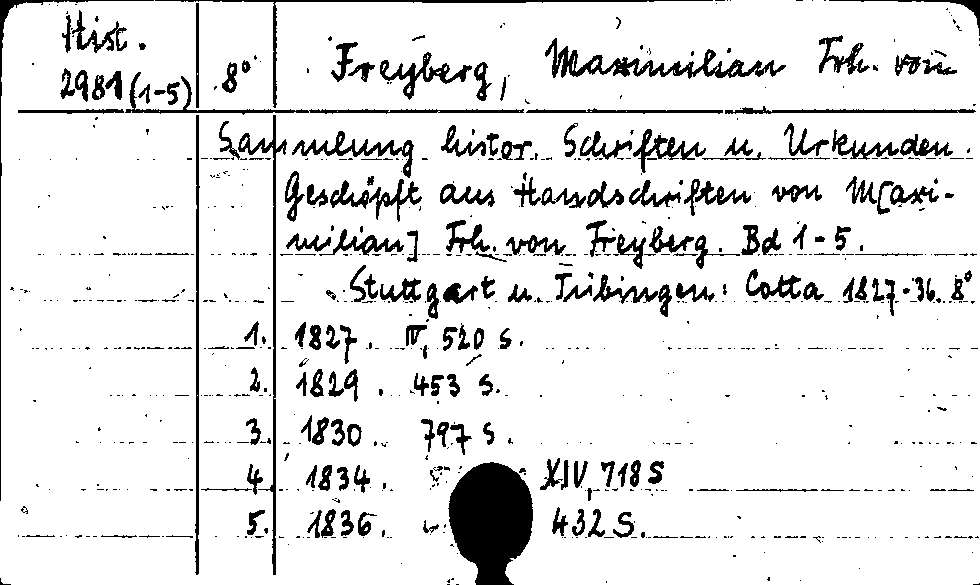 Hist.
2981 (1-5) 8° Freyberg, Maximilian Frh. von
Sammlung histor. Schriften u. Urkunden.
Geschöpft aus Handschriften von M[axi-
milian] Frh. von Freyberg. Bd 1-5.
Stuttgart u. Tübingen: Cotta 1827-36. 8°
1. 1827. IV, 520 S.
2. 1829. 453 S.
3. 1830. 797 S.
4. 1834. XIV, 718 S
5. 1836. 432 S.